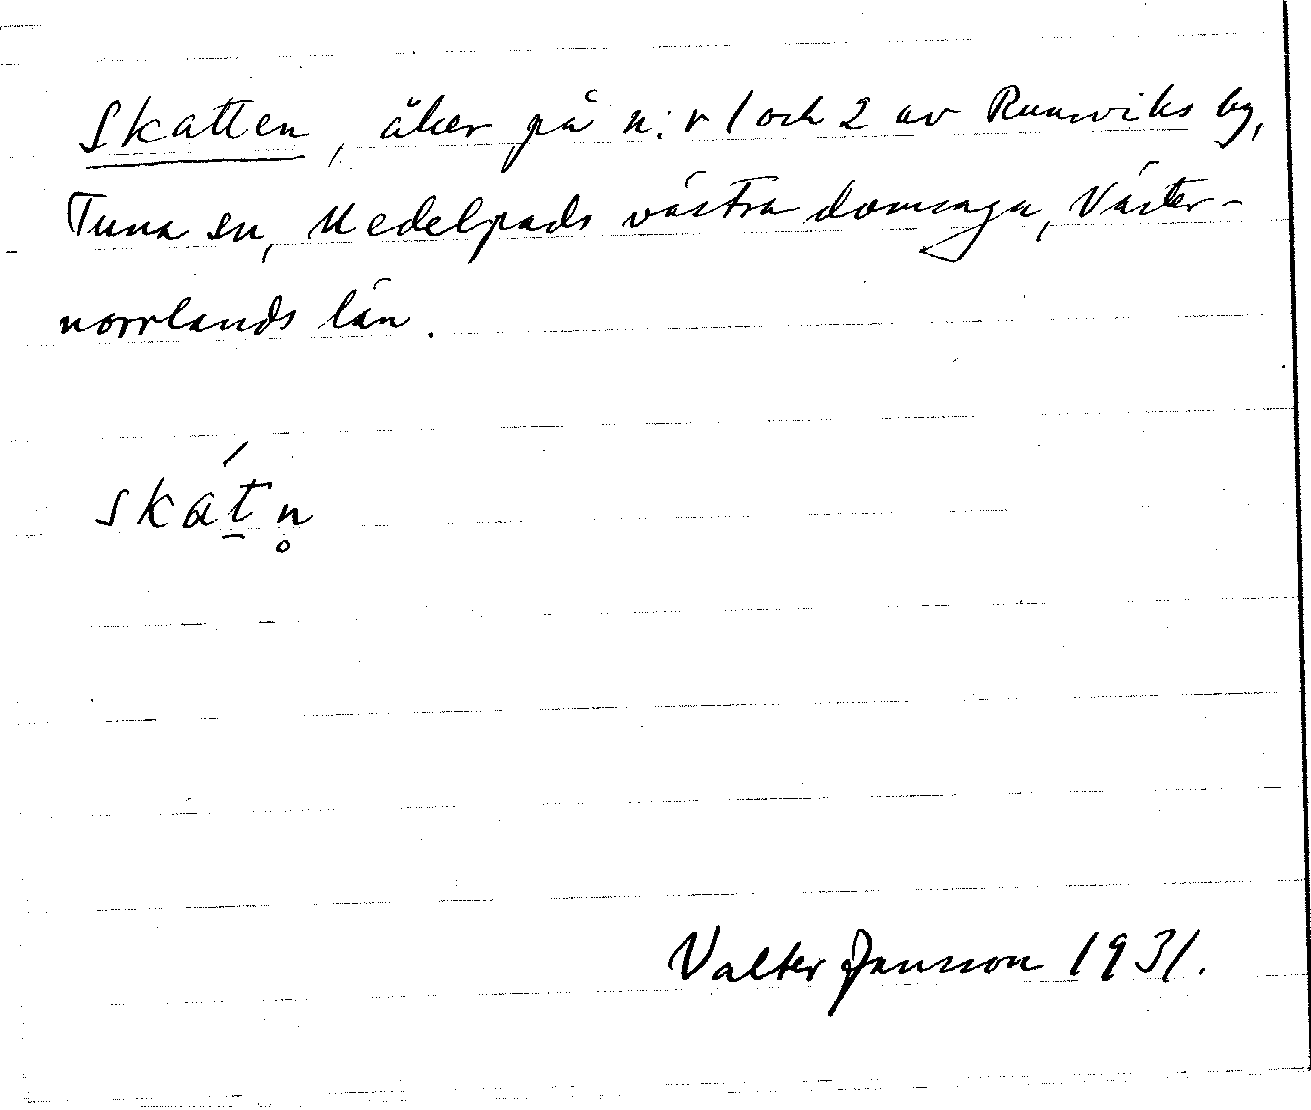 Skatten, åker på n:r 1 och 2 av Runsviks by,
Tuna sn, Medelpads västra domsaga, Väster-
norrlands län.
skát̠n̥
Valter Jansson 1931.